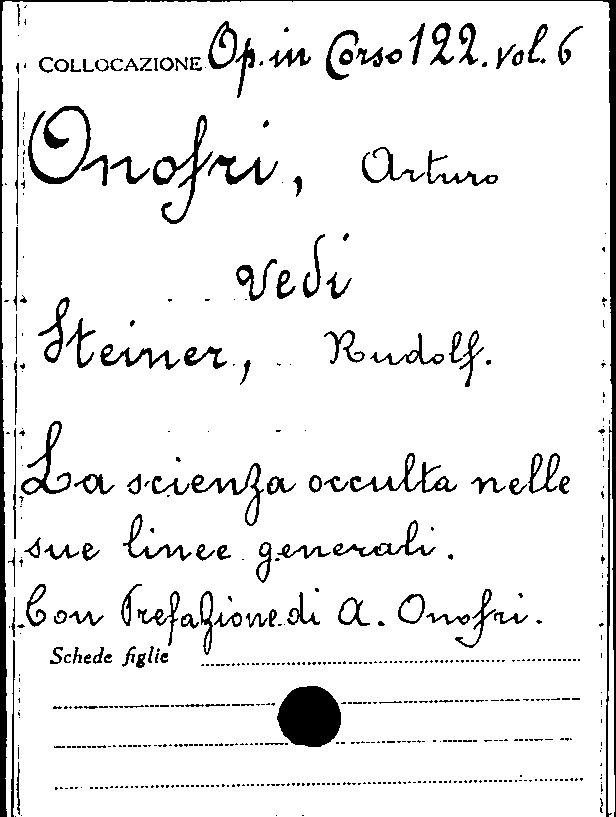 COLLOCAZIONE Op. in Corso 122. vol. 6
Onofri, Arturo
vedi
Steiner, Rudolf.
La scienza occulta nelle
sue linee generali.
Con Prefazione di A. Onofri.
Schede figlie